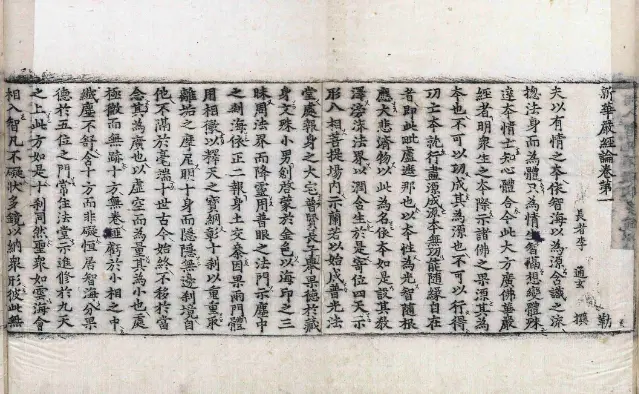 新華嚴經論卷第一 勒
長者李 通玄 撰
夫以有情之夲依智海以為源含識之流
捴法身而為體只為情生智隔想變體殊
達夲情亡知心體合今此大方廣佛華嚴
經者明衆生之夲際示諸佛之果源其為
夲也不可以功成其為源也不可以行得
功亡夲就行盡源成源夲無功能隨緣自在
者即此毗盧遮那也以夲性為先智隨根
應大悲濟物以此為名依夲如是設其教
澤滂流法界以潤含生於是寄位四天示
形八相菩提場内示蘭若以始成普光法
堂處報身之大宅普賢長子舉果德於藏
身文殊小男創啓蒙於金色以海印之三
昧周法界而降靈用普眼之法門示塵中
之刹海依正二報身土交叅因果兩門體
用相徹以釋天之寶網彰十刹以重重取
離垢之摩尼明十身而隱隱無邊刹境自
他不隔於毫端十世古今始終不移於當
念其為廣也以虛空而為量其為小也處
極微而無跡十方無卷匪虧於小相之中
纎塵不舒含十方而非礙恒居智海分果
德於五位之門常住法堂示進修於九天
之上此方如是十刹同然聖衆如雲海會
相入智凡不礙狀多鏡以納衆形彼此無